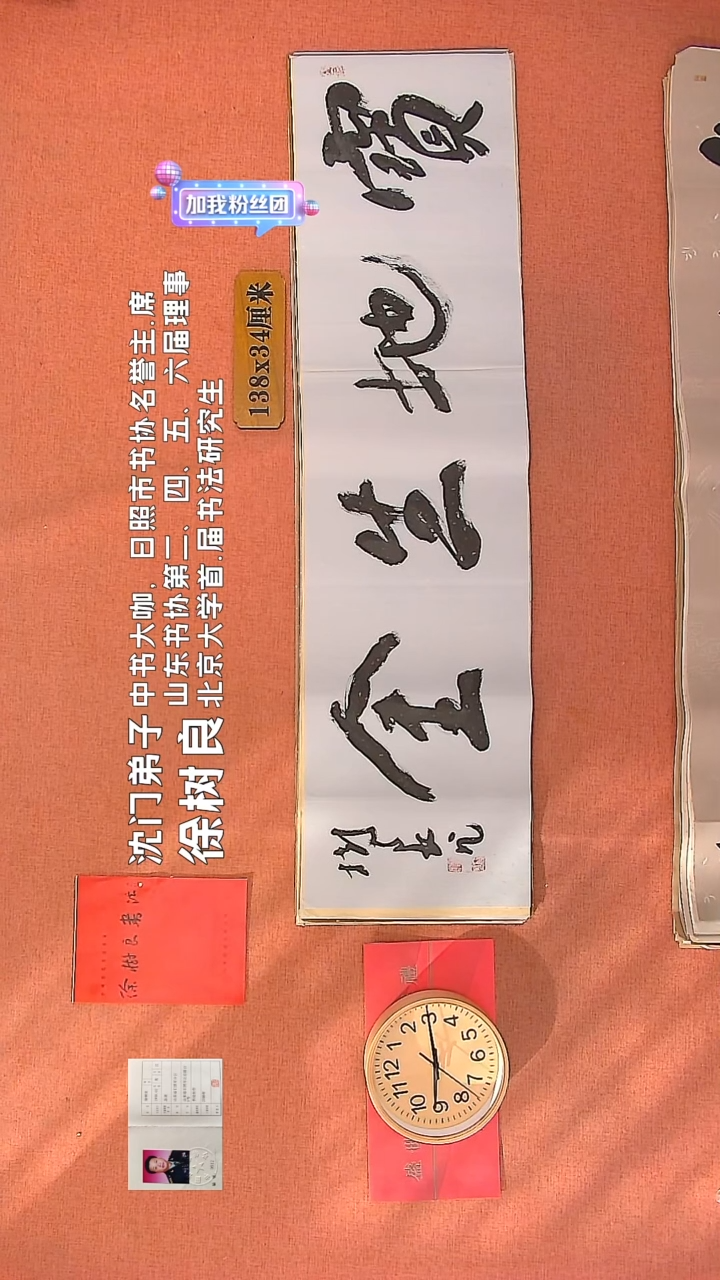 加我粉丝团
沈门弟子
中书大咖，日照市书协名誉主.席
山东书协第三、四、五、六届理事
徐树良
北京大学首.届书法研究生
138x34厘米
寶地生金
徐樹良書法。
禮
盛
12
1
2
3
4
5
6
7
8
9
10
11